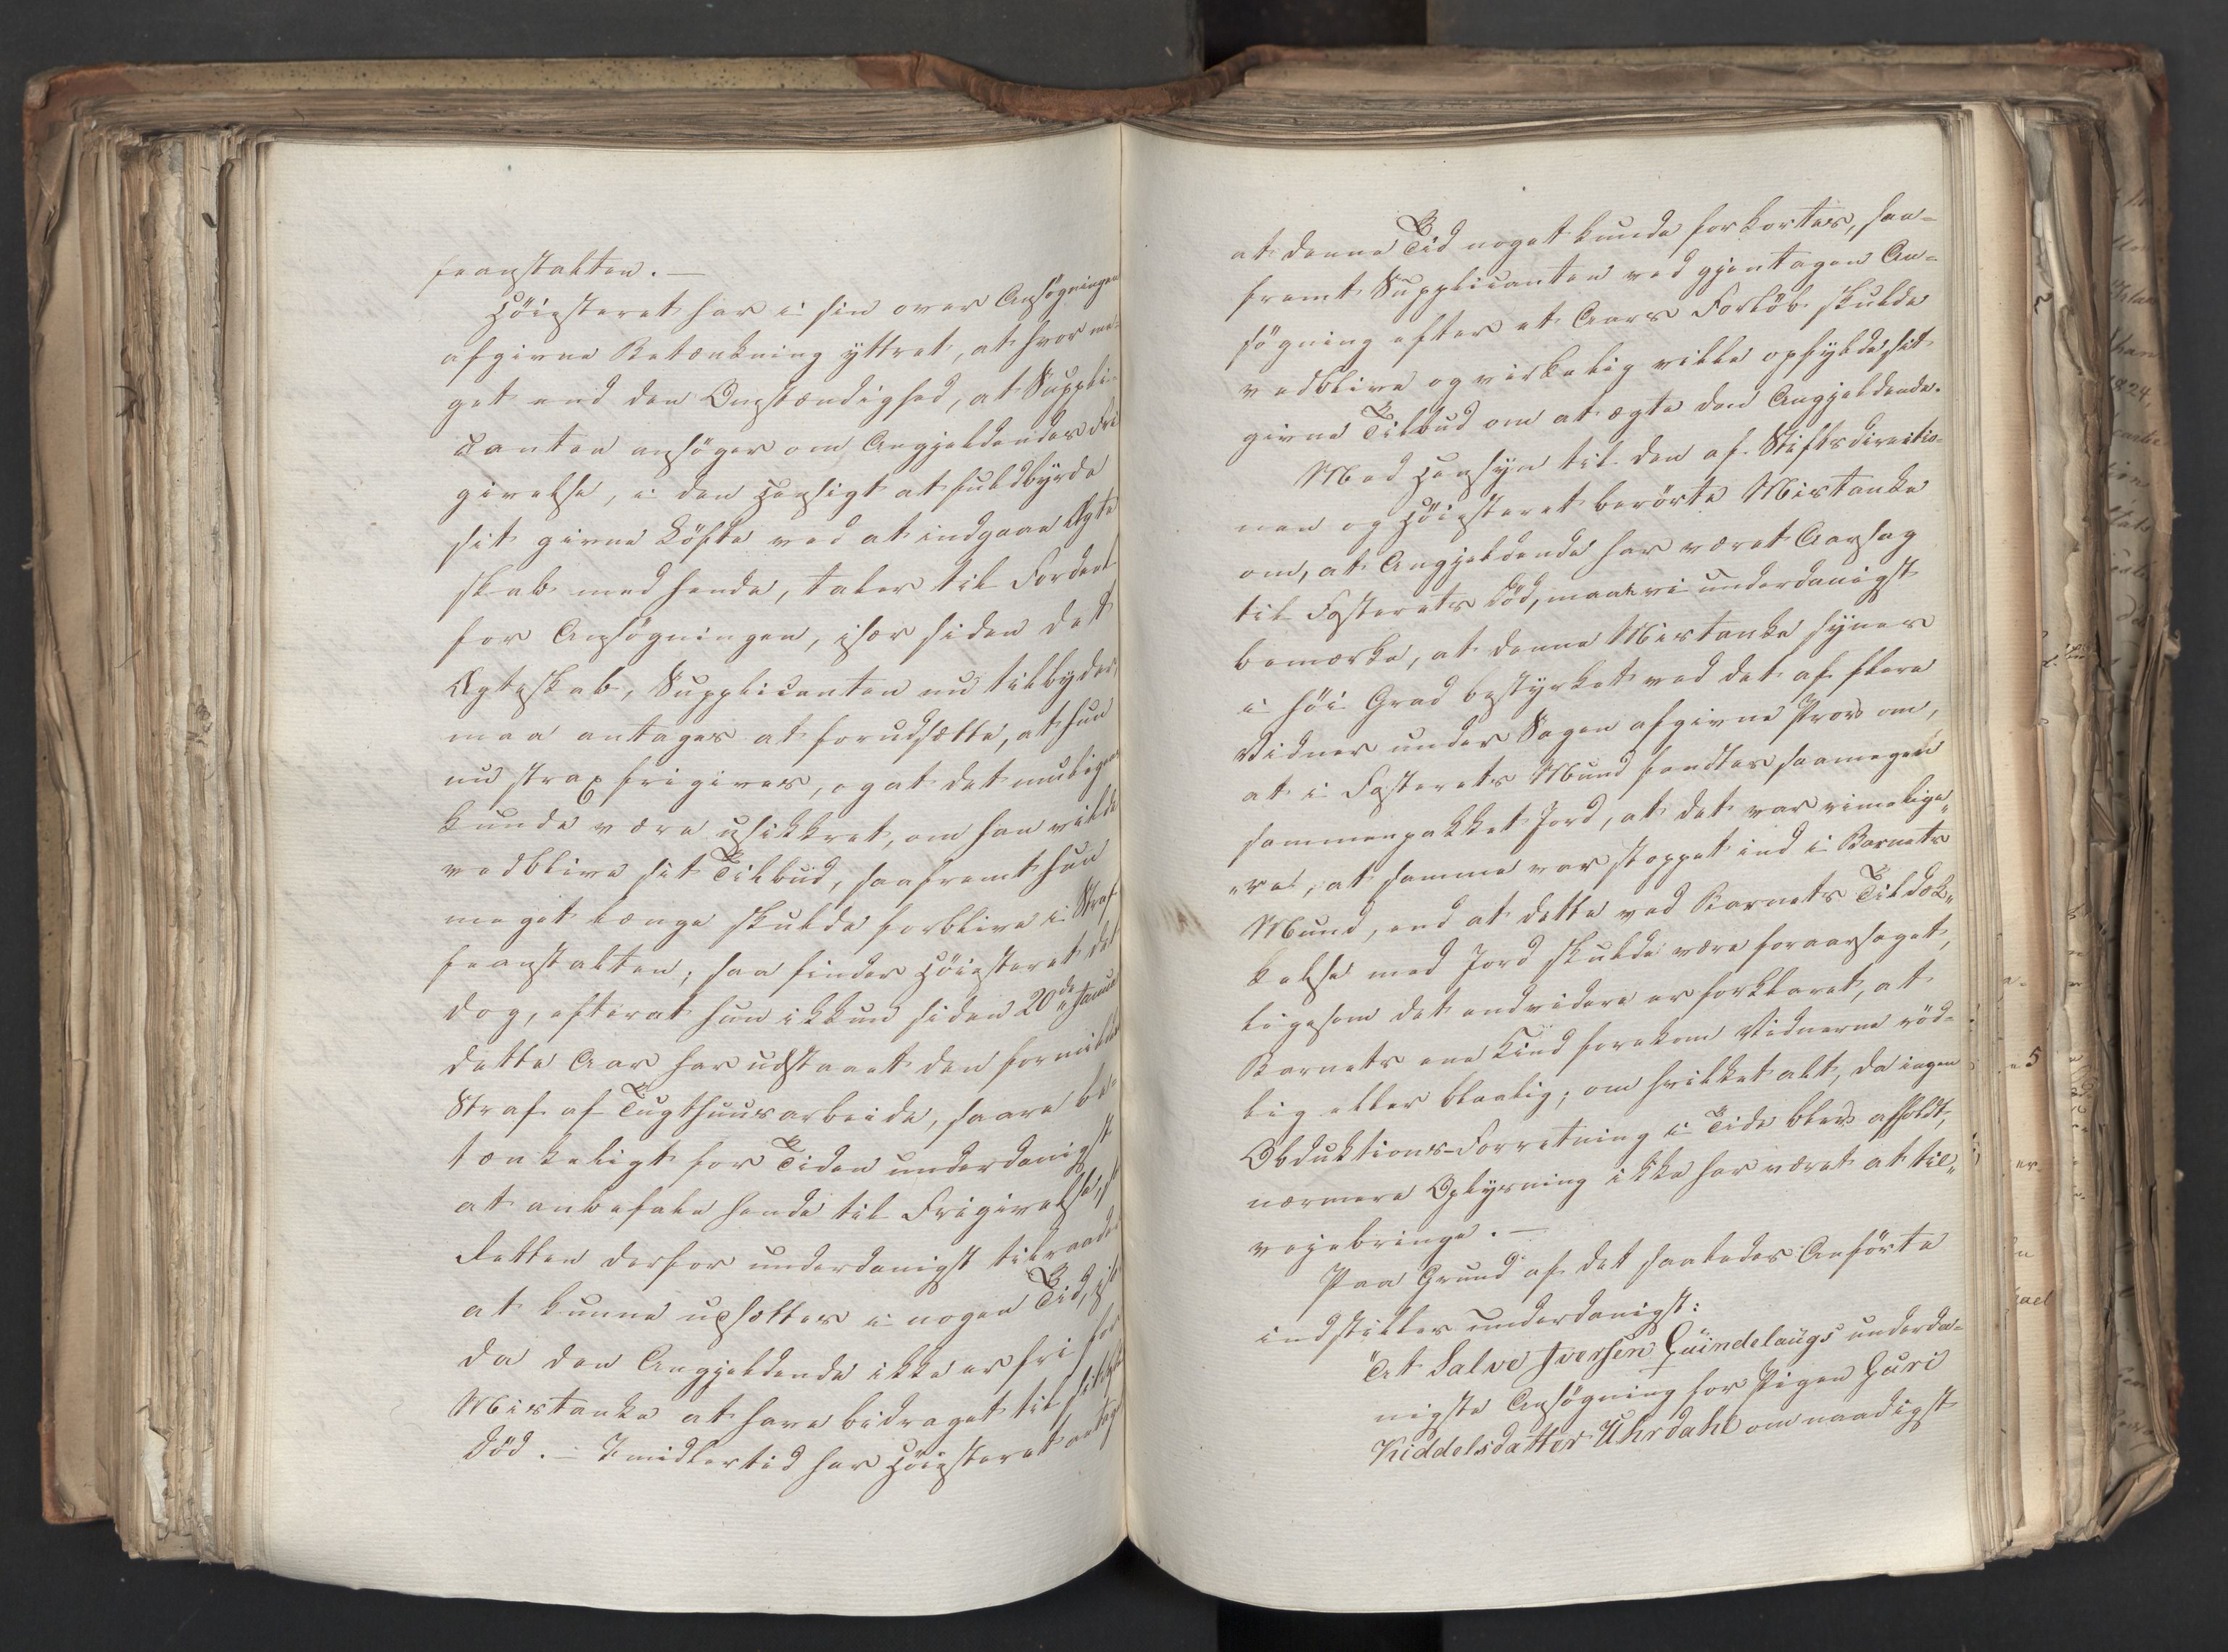 feanstalten. —
Höiesteret har i sin over Ansøgningen
afgivne Betænkning yttret, at hvor me-
get end den Omstændighed, at Suppli-
canten ansøger om Angjeldendes Fri
givelse, i den Hensigt at fuldbyrde
sit givne Löfte ved at indgaae Ægte
skab med hende, taler til Fordeel
for Ansøgningen, især siden det
Ægteskab, Supplicanten nu tilbyder,
maa antages at forudsætte, at hun
nu strax frigives, og at det muligen
kunde være usikkert, om han vilde
vedblive sit Tilbud, saafremt hun
meget længe skulde forblive i Straf-
feanstalten; saa finder Höiesteret det
dog, efterat hun ikkun siden 20de Januar
dette Aar har udstaaet den formildede
Straf af Tugthuusarbeide, saare be-
tænkeligt for Tiden underdanigst
at anbefale hende til Frigivelse,
Retten derfor underdanigst tilraader
at kunne udsættes i nogen Tid,
da den Angjeldende ikke er fri for
Mistanke at have bidraget til
Död. – Imidlertid har Höiesteret antaget
at denne Tid noget kunde forkortes, saa-
fremt Supplicanten ved gjentagen An-
søgning efter et Aars Forløb skulde
vedblive og virkelig ville opfylde sit
givne Tilbud om at ægte den Angjeldende.
Med Hensyn til den af Stiftsdirectio-
nen og Höiesteret berörte Mistanke
om, at Angjeldende har været Aarsag
til Fosterets Död, maae vi underdanigst
bemærke, at denne Mistanke synes
i höi Grad bestyrket ved det af flere
Vidner under Sagen afgivne Prov om,
at i Fosterets Mund fandtes saamegen
sammenpakket Jord, at det var rimelige„
„re, at samme var stoppet ind i Barnets
Mund, end at dette ved Barnets Tildæk„
kelse med Jord skulde være foraarsaget,
ligesom det endvidere er forklaret, at
Barnets ene Kind forekom Vidnerne röd-
lig eller blaalig; om hvilket alt, da ingen
Obduktions-Forretning i Tide blev afholdt,
nærmere Oplysning ikke har været at til„
veiebringe. –
Paa Grund af det saaledes Anförte
indstilles underdanigst:
"At Salve Iversen Quindelaugs underda-
nigste Ansøgning for Pigen Guri
Kiddelsdatter Uhrdahl om naadigst